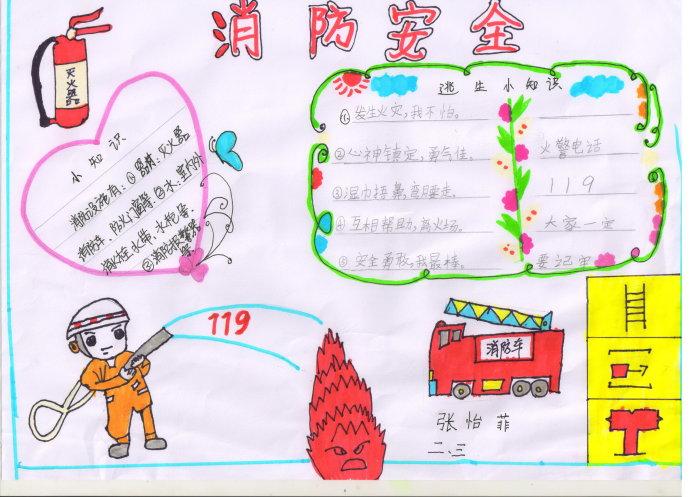 消防安全
灭火器
小知识
消防设施有:①器材:灭火器
消防车、防火面罩
消火栓、水带、水枪等
逃生小知识
①发生火灾,我不怕。
②心神镇定,勇气佳。
③湿巾捂鼻,弯腰走。
④互相帮助,离火场。
⑤安全勇敢,我最棒。
火警电话
119
大家一定
要记牢
119
消防车
张怡菲
二.三